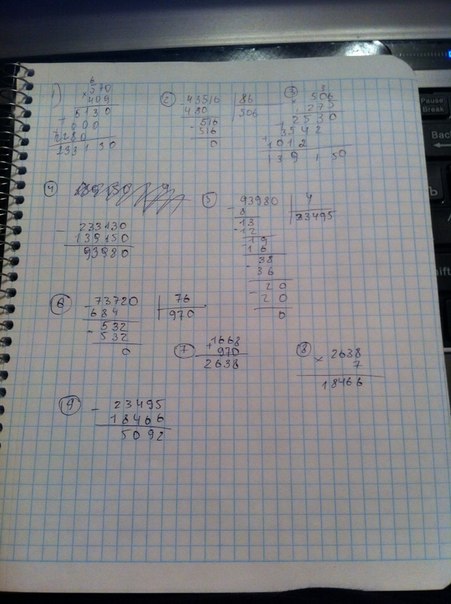 1) 6
570
× 409
5130
+ 000
2280
233130
2 43516 | 86
430 | 506
- 516
516
0
3
× 506
275
2530
+ 3542
1012
139150
4
233130
139150
93980
5 - 93980 | 4
8 | 23495
- 13
12
- 19
16
- 38
36
- 20
20
0
6 - 73720 | 76
684 | 970
- 532
532
0
7 + 1668
970
2638
8 × 2638
7
18466
9 - 23495
18466
5092
Pause
Break